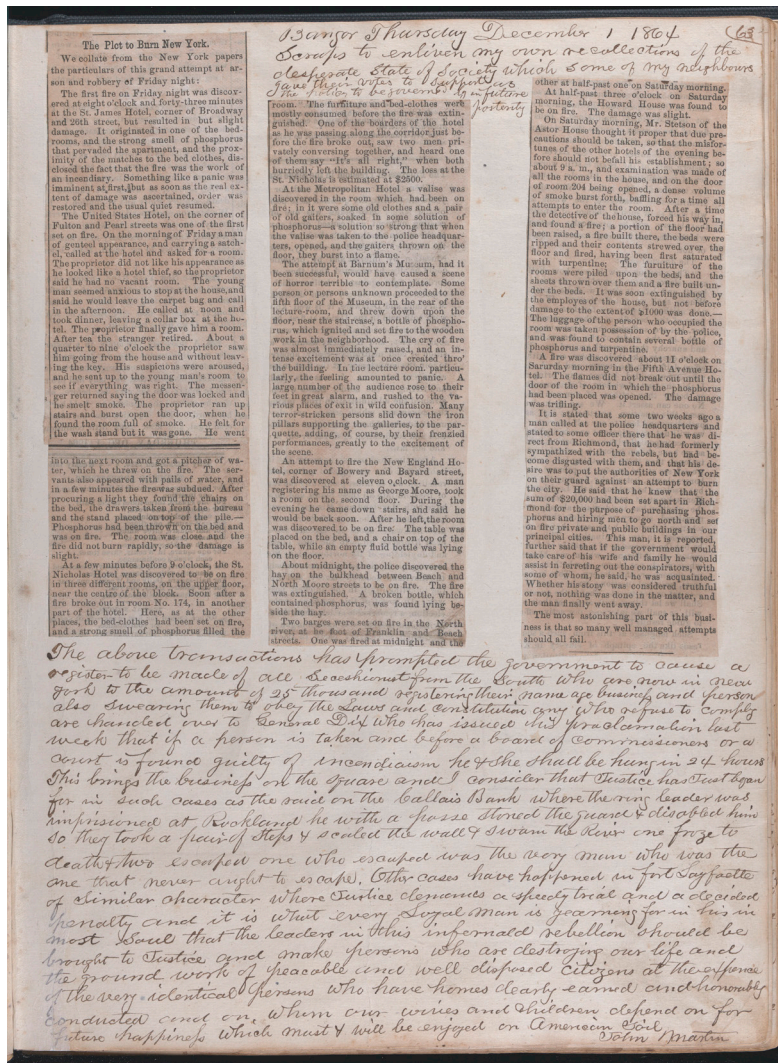 Bangor Thursday December 1 1864 (63
Scraps to enliven my own recollections of the
desperate State of Society which some of my neighbours
gave their votes to support us
to be governed by in future
posterity
The Plot to Burn New York.
We collate from the New York papers
the particulars of this grand attempt at ar-
son and robbery of Friday night:
The first fire on Friday night was discov-
ered at eight o'clock and forty-three minutes
at the St. James Hotel, corner of Broadway
and 26th street, but resulted in but slight
damage. It originated in one of the bed-
rooms, and the strong smell of phosphorus
that pervaded the apartment, and the prox-
imity of the matches to the bed clothes, dis-
closed the fact that the fire was the work of
an incendiary. Something like a panic was
imminent at first, but as soon as the real ex-
tent of damage was ascertained, order was
restored and the usual quiet resumed.
The United States Hotel, on the corner of
Fulton and Pearl streets was one of the first
set on fire. On the morning of Friday a man
of genteel appearance, and carrying a satch-
el, called at the hotel and asked for a room.
The proprietor did not like his appearance as
he looked like a hotel thief, so the proprietor
said he had no vacant room. The young
man seemed anxious to stop at the house, and
said he would leave the carpet bag and call
in the afternoon. He called at noon and
took dinner, leaving a collar box at the ho-
tel. The proprietor finally gave him a room.
After tea the stranger retired. About a
quarter to nine o'clock the proprietor saw
him going from the house and without leav-
ing the key. His suspicions were aroused,
and he sent up to the young man's room to
see if everything was right. The messen-
ger returned saying the door was locked and
he smelt smoke. The proprietor ran up
stairs and burst open the door, when he
found the room full of smoke. He felt for
the wash stand but it was gone. He went
into the next room and got a pitcher of wa-
ter, which he threw on the fire. The ser-
vants also appeared with pails of water, and
in a few minutes the fire was subdued. After
procuring a light they found the chairs on
the bed, the drawers taken from the bureau
and the stand placed on top of the pile.—
Phosphorus had been thrown on the bed and
was on fire. The room was close and the
fire did not burn rapidly, so the damage is
slight.
At a few minutes before 9 o'clock, the St.
Nicholas Hotel was discovered to be on fire
in three different rooms, on the upper floor,
near the centre of the block. Soon after a
fire broke out in room No. 174, in another
part of the hotel. Here, as at the other
places, the bed-clothes had been set on fire,
and a strong smell of phosphorus filled the
room. The furniture and bed-clothes were
mostly consumed before the fire was extin-
guished. One of the boarders of the hotel
as he was passing along the corridor just be-
fore the fire broke out, saw two men pri-
vately conversing together, and heard one
of them say "It's all right," when both
hurriedly left the building. The loss at the
St. Nicholas is estimated at $2500.
At the Metropolitan Hotel a valise was
discovered in the room which had been on
fire; in it were some old clothes and a pair
of old gaiters, soaked in some solution of
phosphorus—a solution so strong that when
the valise was taken to the police headquar-
ters, opened, and the gaiters thrown on the
floor, they burst into a flame.
The attempt at Barnum's Museum, had it
been successful, would have caused a scene
of horror terrible to contemplate. Some
person or persons unknown proceeded to the
fifth floor of the Museum, in the rear of the
lecture-room, and threw down upon the
floor, near the staircase, a bottle of phospho-
rus, which ignited and set fire to the wooden
work in the neighborhood. The cry of fire
was almost immediately raised, and an in-
tense excitement was at once created thro'
the building. In the lecture room, particu-
larly, the feeling amounted to panic. A
large number of the audience rose to their
feet in great alarm, and rushed to the va-
rious places of exit in wild confusion. Many
terror-stricken persons slid down the iron
pillars supporting the galleries, to the par-
quette, adding, of course, by their frenzied
performances, greatly to the excitement of
the scene.
An attempt to fire the New England Ho-
tel, corner of Bowery and Bayard street,
was discovered at eleven o'clock. A man
registering his name as George Moore, took
a room on the second floor. During the
evening he came down stairs, and said he
would be back soon. After he left, the room
was discovered to be on fire. The table was
placed on the bed, and a chair on top of the
table, while an empty fluid bottle was lying
on the floor.
About midnight, the police discovered the
hay on the bulkhead between Beach and
North Moore streets to be on fire. The fire
was extinguished. A broken bottle, which
contained phosphorus, was found lying be-
side the hay.
Two barges were set on fire in the North
river, at the foot of Franklin and Beach
streets. One was fired at midnight and the
other at half-past one on Saturday morning.
At half-past three o'clock on Saturday
morning, the Howard House was found to
be on fire. The damage was slight.
On Saturday morning, Mr. Stetson of the
Astor House thought it proper that due pre-
cautions should be taken, so that the misfor-
tunes of the other hotels of the evening be-
fore should not befall his establishment; so
about 9 a. m., and examination was made of
all the rooms in the house, and on the door
of room 204 being opened, a dense volume
of smoke burst forth, baffling for a time all
attempts to enter the room. After a time
the detective of the house, forced his way in,
and found a fire; a portion of the floor had
been raised, a fire built there, the beds were
ripped and their contents strewed over the
floor and fired, having been first saturated
with turpentine; The furuiture of the
rooms were piled upon the beds, and the
sheets thrown over them and a fire built un-
der the beds. It was soon extinguished by
the employes of the house, but not before
damage to the extent of $1000 was done.—
The luggage of the person who occupied the
room was taken possession of by the police,
and was found to contain several bottle of
phosphorus and turpentine.
A fire was discovered about 11 o'clock on
Saturday morning in the Fifth Avenue Ho-
tel. The flames did not break out until the
door of the room in which the phosphorus
had been placed was opened. The damage
was trifling.
It is stated that some two weeks ago a
man called at the police headquarters and
stated to some officer there that he was di-
rect from Richmond, that he had formerly
sympathized with the rebels, but had be-
come disgusted with them, and that his de-
sire was to put the authorities of New York
on their guard against an attempt to burn
the city. He said that he knew that the
sum of $20,000 had been set apart in Rich-
mond for the purpose of purchasing phos-
phorus and hiring men to go north and set
on fire private and public buildings in our
principal cities. This man, it is reported,
further said that if the government would
take care of his wife and family he would
assist in ferreting out the conspirators, with
some of whom, he said, he was acquainted.
Whether his story was considered truthful
or not, nothing was done in the matter, and
the man finally went away.
The most astonishing part of this busi-
ness is that so many well managed attempts
should all fail.
The above transactions has prompted the government to cause a
register to be made of all Seceshionist from the South who are now in new
york to the amount of 25 thousand registering their name age business and person
also swearing them to obey the Laws and constitution any who refuse to comply
are handed over to General Dix who has issued his proclamation last
week that if a person is taken and before a board of commissioners or a
court is found guilty of incendiaism he & she shall be hung in 24 hours
This brings the business on the square and I consider that Justice has Just began
for in such cases as the raid on the Callais Bank where the ring leader was
imprisioned at Rockland he with a posse stoned the guard & disabled him
so they took a pair of steps & scaled the wall & swam the River one froze to
death & two escaped one who escaped was the very man who was the
one that never aught to escape. Other cases have happened in fort Layfaette
of Similar character where Justice demands a speedy trial and a decided
penalty and it is what every Loyal man is yearning for in his in
most Soul that the leaders in this infernald rebellion should be
brought to Justice and make persons who are destroying our life and
the ground work of peacable and well disposed citizens at the expence
of the very identical persons who have homes dearly earned and honorably
conducted and on whom our wives and children depend on for
future happiness which must & will be enjoyed on American Soil
John Martin